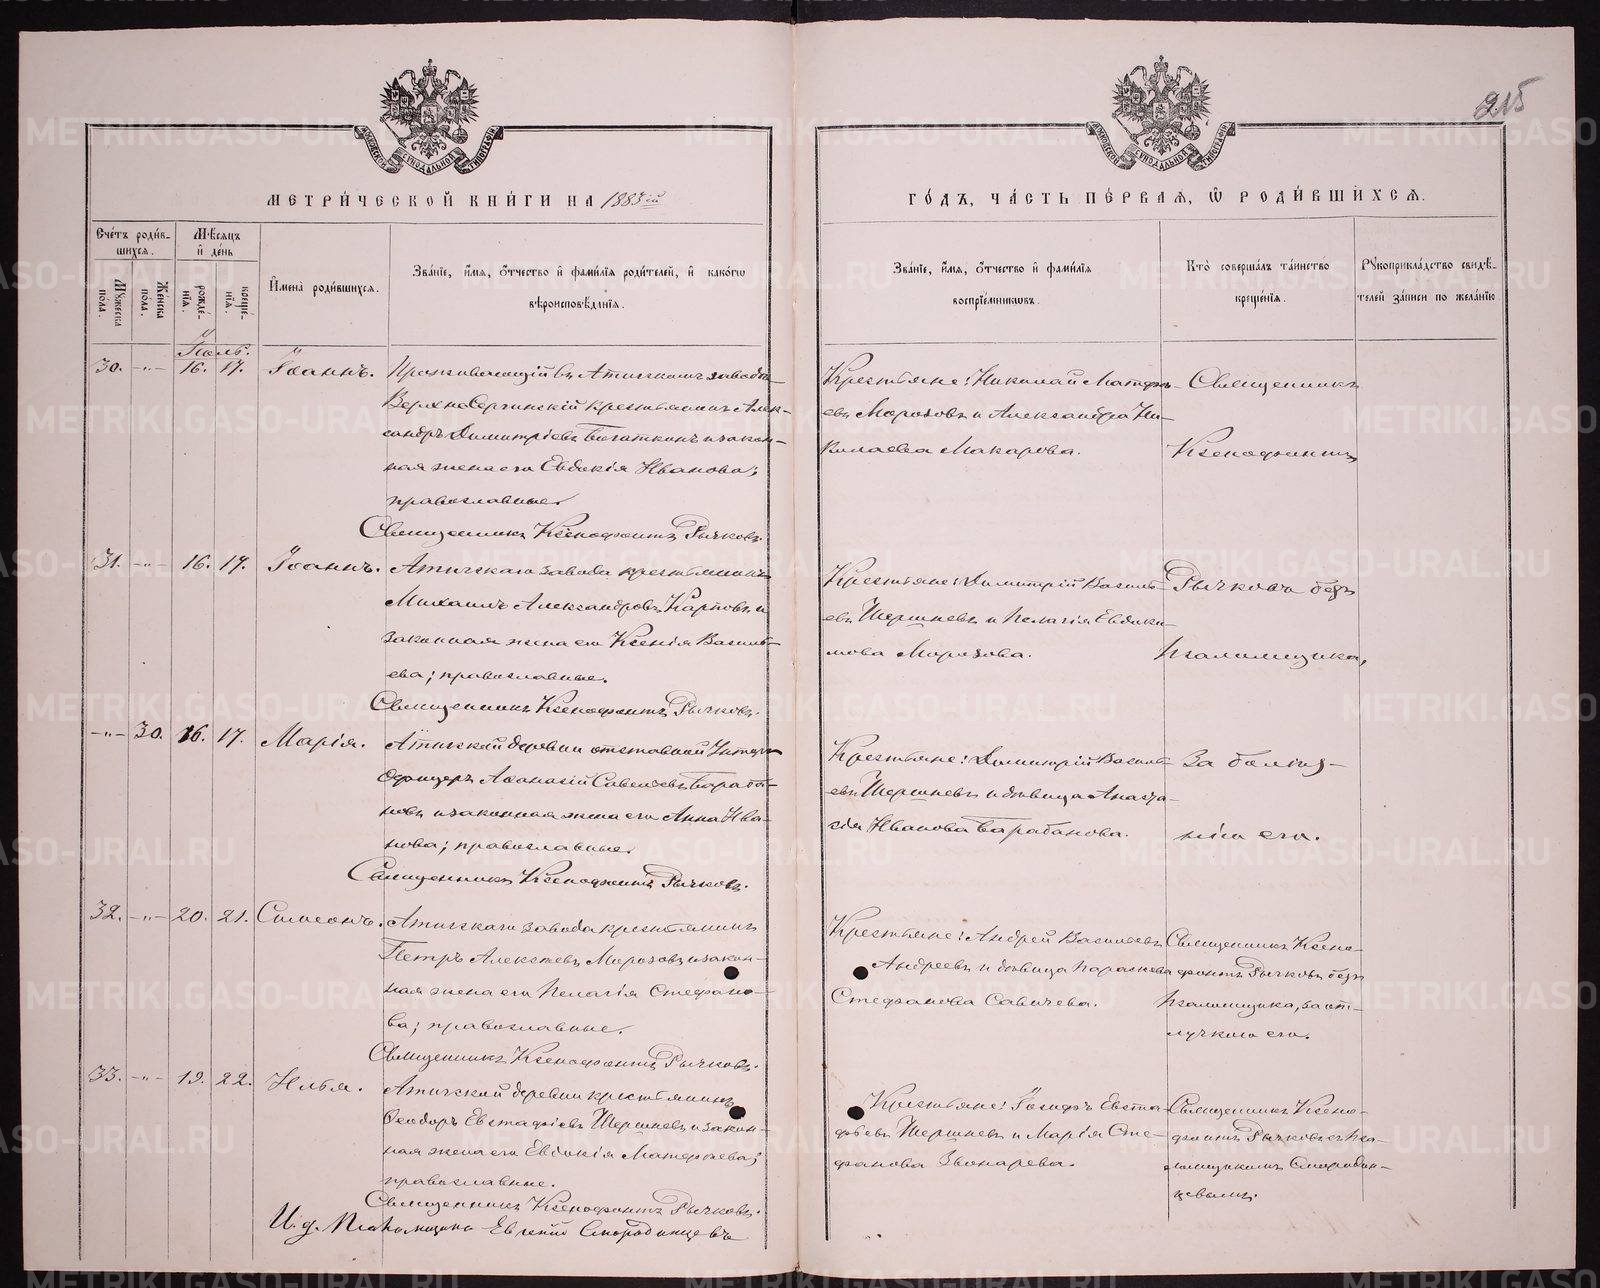 215
МОСКОВСКОЙ СѴНОДАЛЬНОЙ ТИПОГРАФІИ
МОСКОВСКОЙ СѴНОДАЛЬНОЙ ТИПОГРАФІИ
МЕТРИ́ЧЕСКОЙ КНИ́ГИ НА 1883 й
ГО́ДЪ, ЧА́СТЬ ПЕ́РВАЯ, Ѡ РОДИ́ВШИХСЯ.
Сче́тъ роди́в-
шихся.
Му́жеска по́ла.
Же́нска по́ла.
Мѣ́сяцъ
и҆ де́нь
рожде́-
нїя.
креще́-
нїя.
И҆мена̀ роди́вшихся.
Зва́нїе, и҆́мя, ѻ҆́тчество и҆ фами́лїя роди́телей, и҆ како́гѡ
вѣроисповѣ́данїя.
Зва́нїе, и҆́мя, ѻ҆́тчество и҆ фами́лїя
воспрїе́мникѡвъ.
Кто̀ соверша́лъ та́инство
креще́нїя.
Рꙋкоприкла́дство свидѣ́-
телей за́писи по жела́нїю
Іюль.
30. -"- 16. 17. Іоаннъ.
Проживающій въ Атигскомъ заводѣ
Верхнесергинскій крестьянинъ Алек-
сандръ Димитріевъ Богаткинъ и закон-
ная жена его Евдокія Иванова;
православные.
Священникъ Ксенофонтъ Рычковъ.
Крестьяне: Николай Матѳѣ-
евъ Морозовъ и Александра Ни-
колаева Макарова.
Священникъ
Ксенофонтъ
31. -"- 16. 17. Іоаннъ.
Атигскаго завода крестьянинъ
Михаилъ Александровъ Карповъ и
законная жена его Ксенія Василь-
ева; православные.
Священникъ Ксенофонтъ Рычковъ.
Крестьяне: Димитрій Василь-
евъ Шершневъ и Пелагія Евдоки-
мова Морозова.
Рычковъ безъ
псаломщика,
-"- 30. 16. 17. Марія.
Атигской деревни отставной Унтеръ
Офицеръ Аѳанасій Савельевъ Бараба-
новъ и законная жена его Анна Ива-
нова; православные.
Священникъ Ксенофонтъ Рычковъ.
Крестьяне: Димитрій Василь-
евъ Шершневъ и дѣвица Анаста-
сія Иванова Барабанова.
За болѣз-
нію его.
32. -"- 20. 21. Симеонъ.
Атигскаго завода крестьянинъ
Петръ Алексѣевъ Морозовъ и закон-
ная жена его Пелагія Стефано-
ва; православные.
Священникъ Ксенофонтъ Рычковъ.
Крестьяне: Андрей Васильевъ
Андреевъ и дѣвица Параскева
Стефанова Савичева.
Священникъ Ксено-
фонтъ Рычковъ безъ
псаломщика, за от-
лучкою его.
33. -"- 19. 22. Илья.
Атигской деревни крестьянинъ
Ѳеодоръ Евстафіевъ Шершневъ и закон-
ная жена его Евдокія Матѳѣева;
православные.
Священникъ Ксенофонтъ Рычковъ.
И. д. Псаломщика Евгеній Смородинцевъ
Крестьяне: Іосифъ Евста-
фьевъ Шершневъ и Марія Сте-
фанова Звонарева.
Священникъ Ксено-
фонтъ Рычковъ съ пса-
ломщикомъ Смородин-
цевымъ.
METRIKI.GASO-URAL.RU